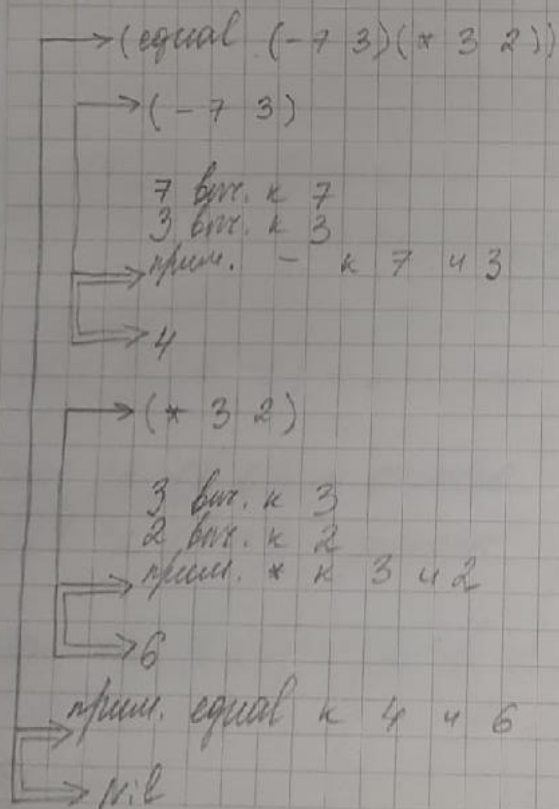 (equal (- 7 3)(* 3 2))
(- 7 3)
7 выч. к 7
3 выч. к 3
прим. - к 7 и 3
4
(* 3 2)
3 выч. к 3
2 выч. к 2
прим. * к 3 и 2
6
прим. equal к 4 и 6
Nil